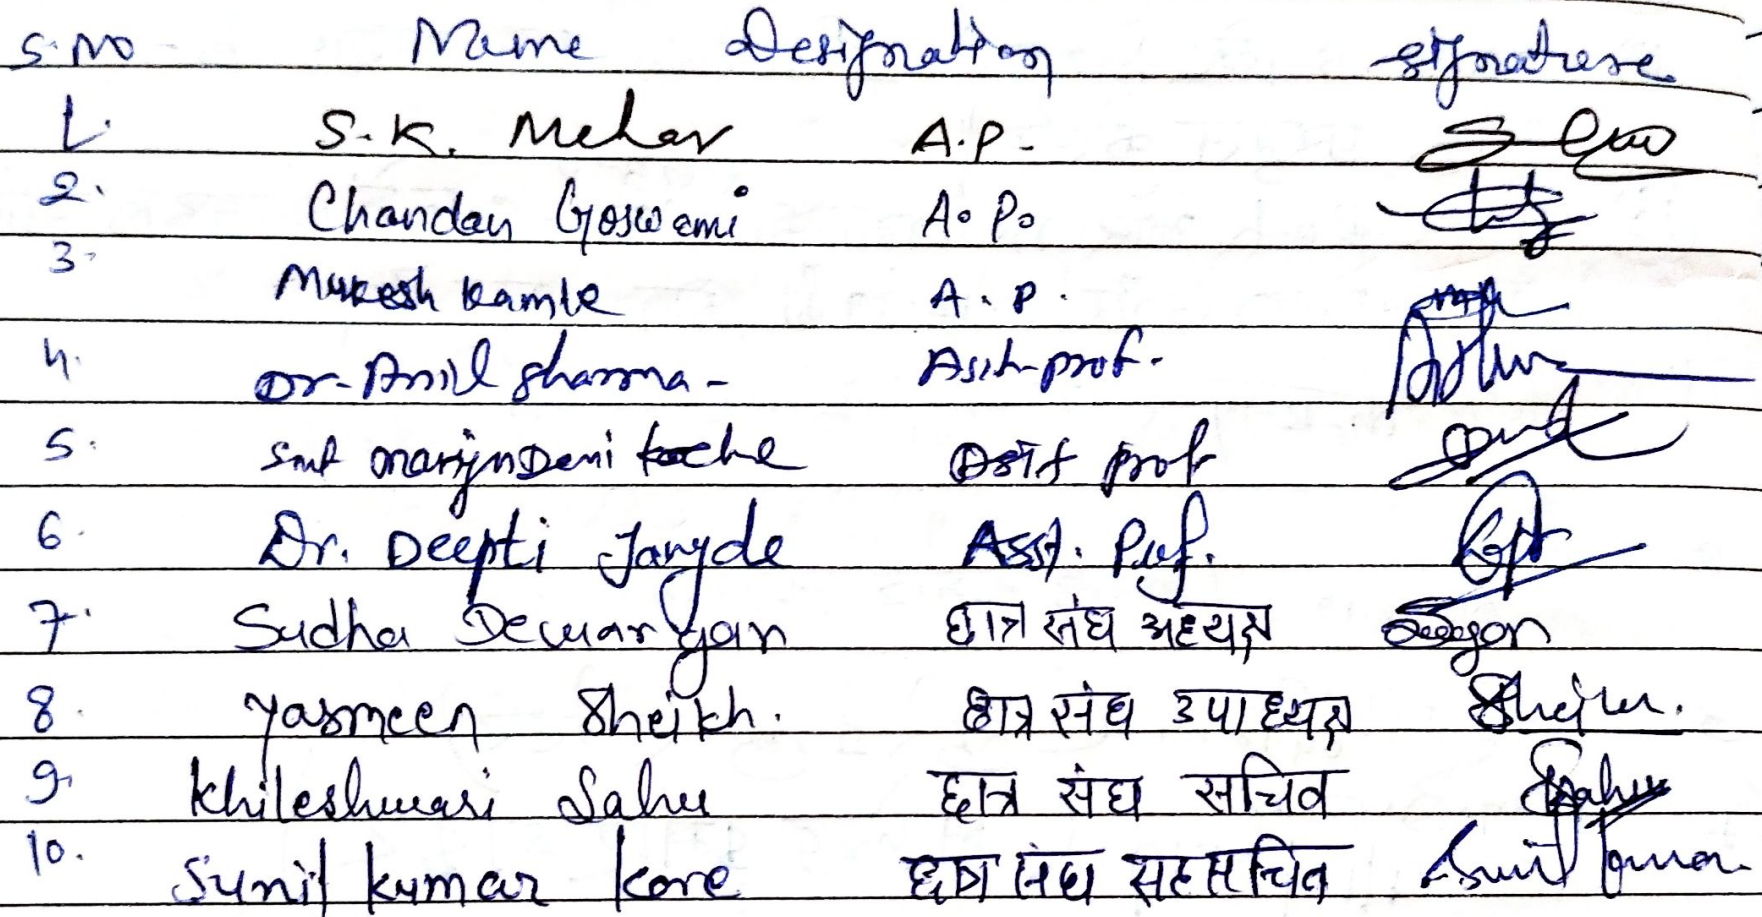 S.No Name Designation Signature
1. S.K. Mehar A.P.
2. Chandan Goswami A.P.
3. Mukesh Kamle A.P.
4. Dr. Anil Sharma - Asstt prof.
5. Smt Deni Asstt prof
6. Dr. Deepti Jangde Asst. Prof.
7. Sudha Dewangan छात्र संघ अध्यक्ष
8. Yasmeen Sheikh. छात्र संघ उपाध्यक्ष Sheikh.
9. Khileshwari Sahu छात्र संघ सचिव Sahu
10. Sunil Kumar Kore छात्र संघ सहसचिव Sunil Kumar